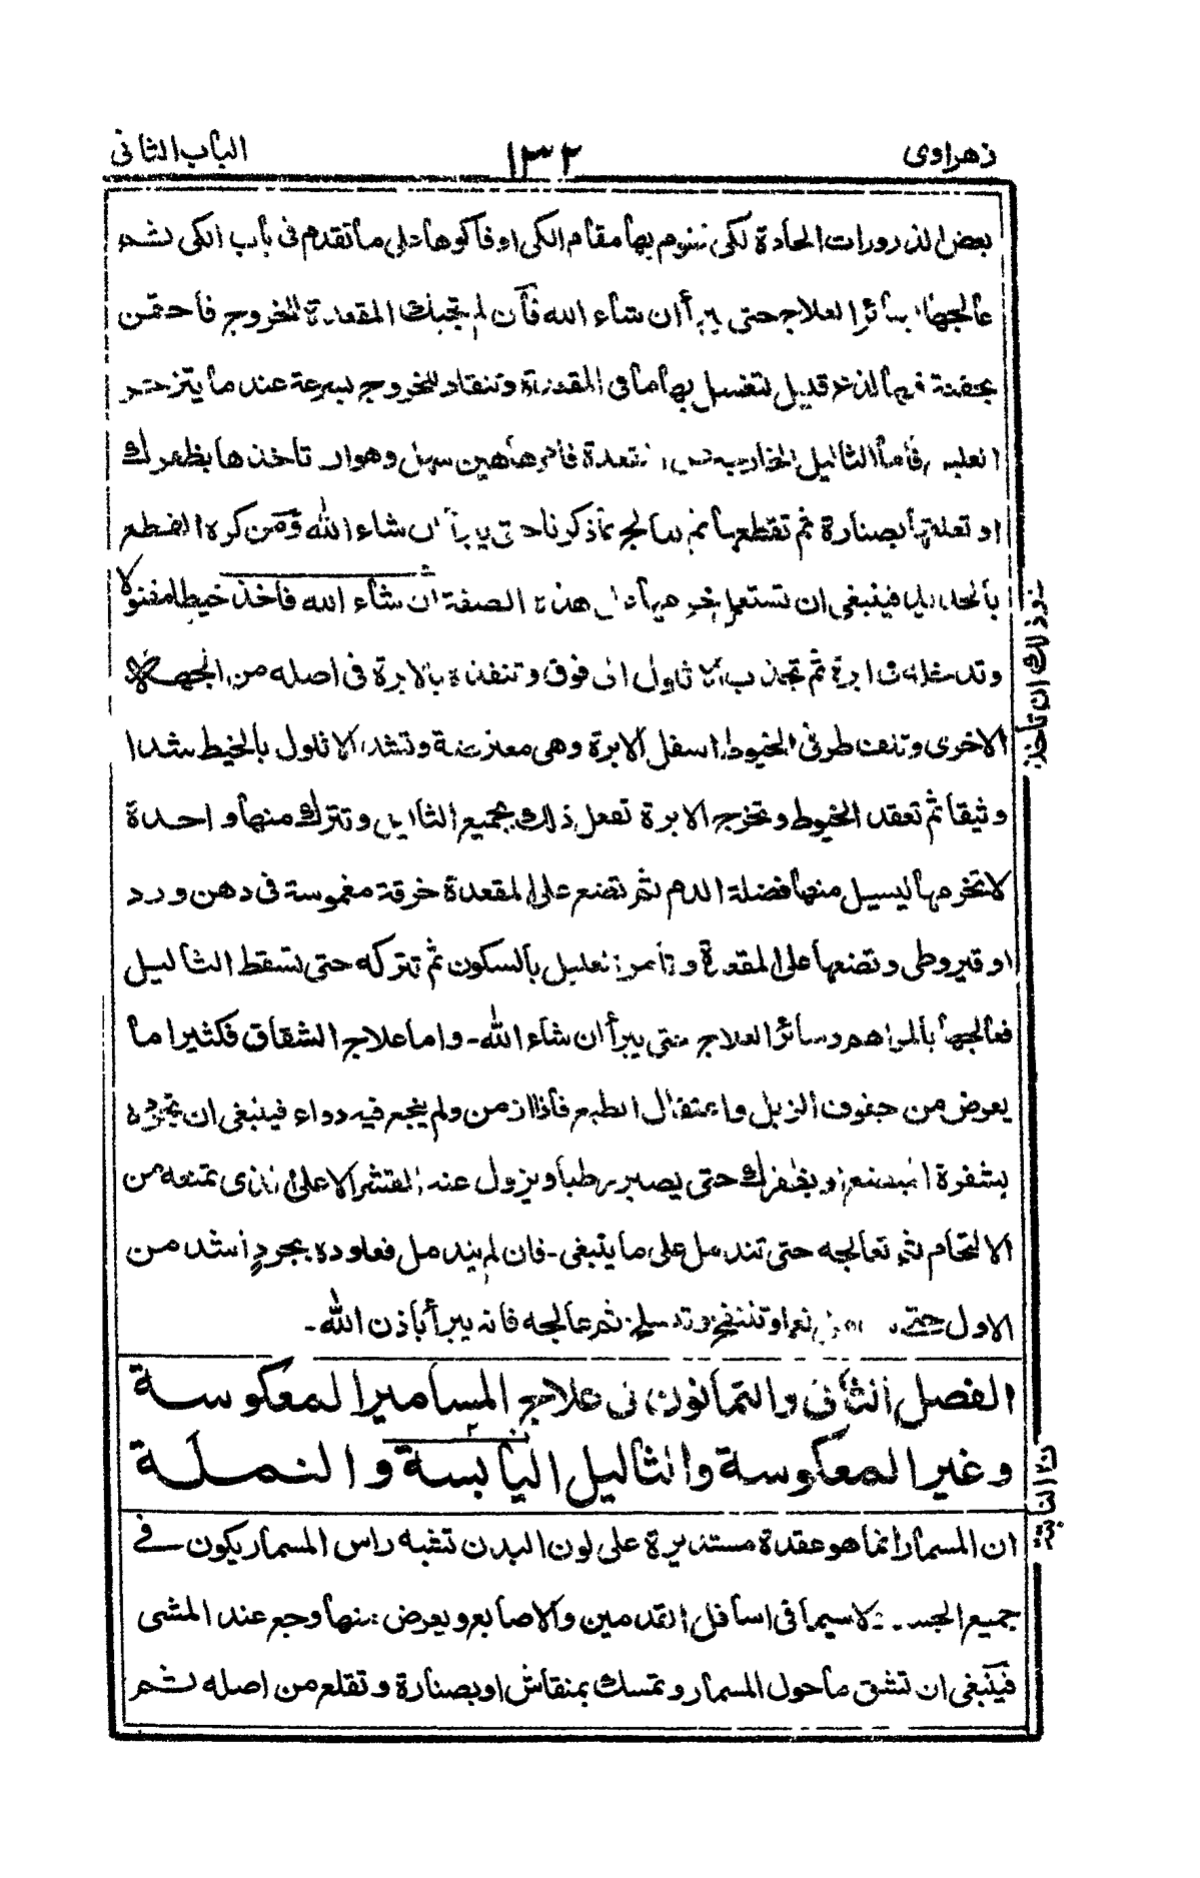 زهراوى ١٣٢ الباب الثانى
بعض الذرورات الحادة لكى تنوم بها مقام الكى او فاكوها على ما تقدم فى باب الكى ثم
عالجها بسائر العلاج حتى يبرأ ان شاء الله فان لم تجبك المقعدة للخروج فاحقن
بحقنة فيها لذع قليل لتغسل بها ما فى المقعدة وتنقاد للخروج بسرعة عندما يتزحر
العليل فاما الثاليل الخارجة المقعدة فامرها هين سهل وهو ان تاخذها بظفرك
او تعلقها بصنارة ثم تقطعها ثم تعالج بما ذكرنا حتى يبرأ ان شاء الله ومن كره القطع
بالحديد فينبغى ان تستعمل هذه الصفة ان شاء الله فاخذ خيطا مفتولا
وتدخله فى ابرة ثم تجذب الاثلول الى فوق وتنفذه بالابرة فى اصله من الجهة
الاخرى وتلف طرفى الخيوط اسفل الابرة وهى معترضة وتشد الاثلول بالخيط شدا
وثيقا ثم تعقد الخيوط وتخرج الابرة تفعل ذلك بجميع الثاليل وتترك منها واحدة
لا تخرمها ليسيل منها فضلة الدم ثم تضع على المقعدة خرقة مغموسة فى دهن ورد
او قيروطى وتضعها على المقعدة وتأمر العليل بالسكون ثم تتركه حتى تسقط الثاليل
فعالجها بالمراهم وسائر العلاج حتى يبرأ ان شاء الله ـ واما علاج الشقاق فكثيرا ما
يعرض من جفوف الزبل واعتقال الطبع فاذا ازمن ولم ينجع فيه دواء فينبغى ان تجرده
بشفرة المبضع او بظفرك حتى يصير رطبا ويزول عنه القشر الاعلى الذى تمنعه من
الالتحام ثم تعالجه حتى تندمل على ما ينبغى ـ فان لم يندمل فعاوده بجردٍ اشد من
الاول حتى او تنتفخ ثم عالجه فانه يبرأ باذن الله ـ
الفصل الثانى والثمانون فى علاج المسامير المعكوسة
وغير المعكوسة والثاليل اليابسة والنملة
ان المسمار انما هو عقدة مستديرة على لون البدن تشبه راس المسمار يكون فى
جميع الجسد لاسيما فى اسافل القدمين والاصابع ويعرض منها وجع عند المشى
فينبغى ان تشق ما حول المسمار وتمسك بمنقاش او بصنارة وتقلع من اصله ثم
ذلك ان تاخذ